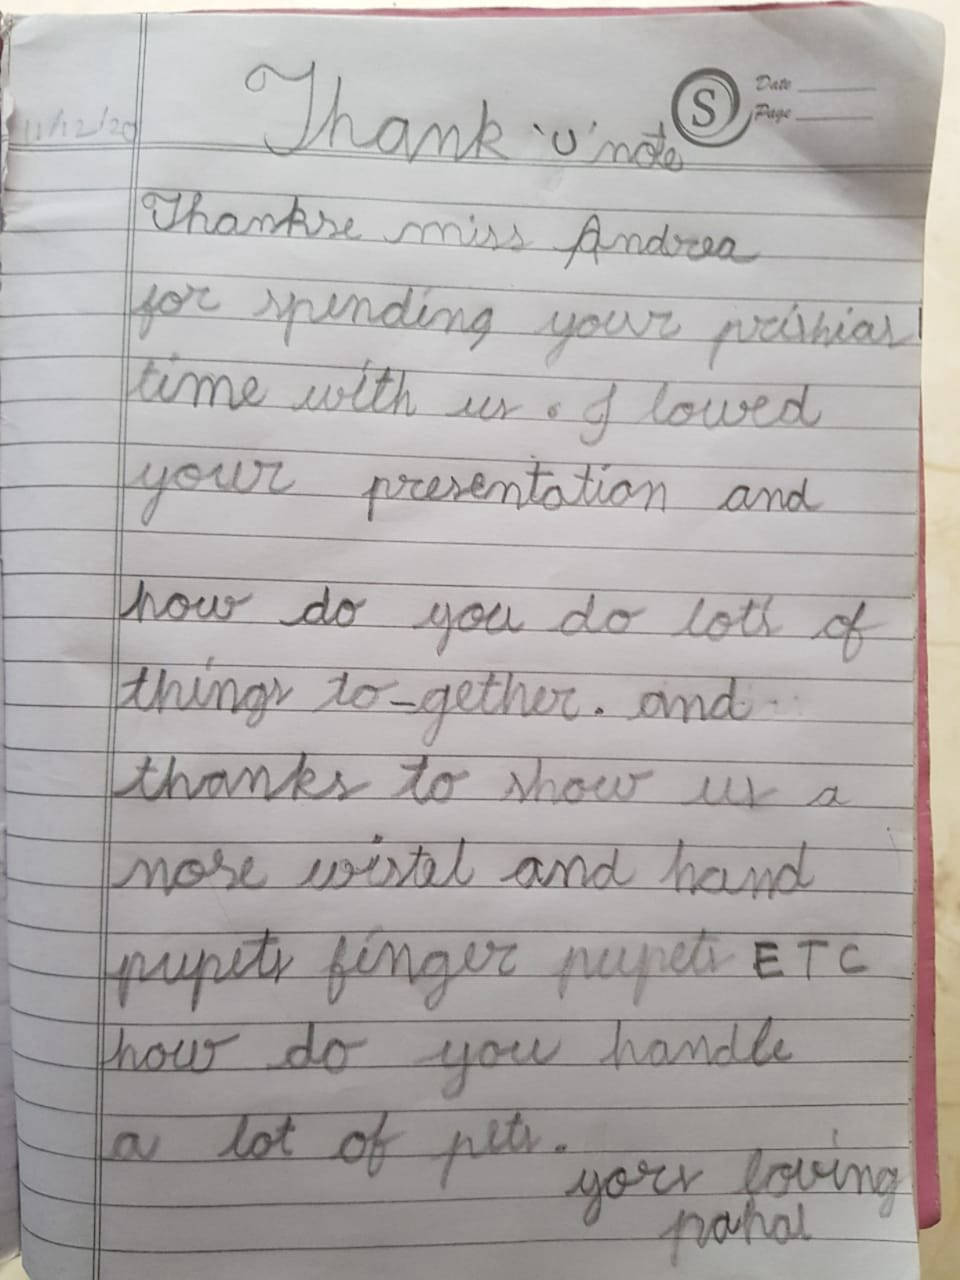 S
Date
Page
11/12/20
Thank 'U' note
Thankse miss Andrea
for spending your prishias
time with us. I lowed
your presentation and
how do you do lots of
things to-gether. and
thanks to show us a
nose wistel and hand
pupets finger pupets ETC
how do you handle
a lot of pets.
yors loving
pahal